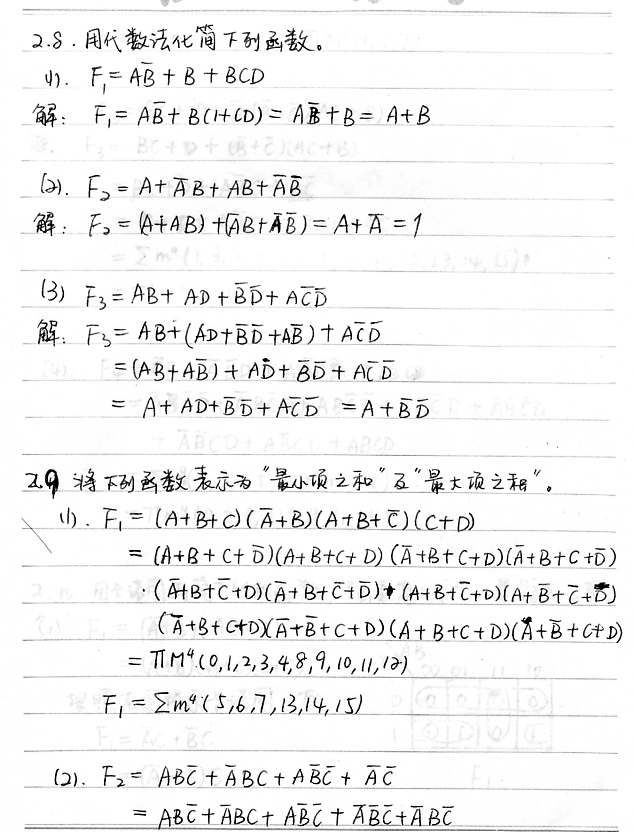 2.8. 用代数法化简下列函数。
(1). F₁ = AB̅ + B + BCD
解: F₁ = AB̅ + B(1+CD) = AB̅ + B = A + B
(2). F₂ = A + A̅B + AB + A̅B̅
解: F₂ = (A+AB) + (A̅B + A̅B̅) = A + A̅ = 1
(3) F₃ = AB + AD + B̅D̅ + AC̅D̅
解: F₃ = AB + (AD + B̅D̅ + AB̅) + AC̅D̅
= (AB + AB̅) + AD + B̅D̅ + AC̅D̅
= A + AD + B̅D̅ + AC̅D̅ = A + B̅D̅
2.9 将下列函数表示为“最小项之和”及“最大项之积”。
(1). F₁ = (A+B+C)(A̅+B)(A+B+C̅)(C+D)
= (A+B+C+D̅)(A+B+C+D)(A̅+B+C+D)(A̅+B+C+D̅)
(A̅+B+C̅+D)(A̅+B+C̅+D̅)(A+B+C̅+D)(A+B+C̅+D̅)
(A̅+B+C+D)(A̅+B̅+C+D)(A+B+C+D)(A̅+B̅+C+D)
= ΠM⁴(0,1,2,3,4,8,9,10,11,12)
F₁ = Σm⁴(5,6,7,13,14,15)
(2). F₂ = ABC̅ + A̅BC + AB̅C̅ + A̅C̅
= ABC̅ + A̅BC + AB̅C̅ + A̅B̅C̅ + A̅BC̅